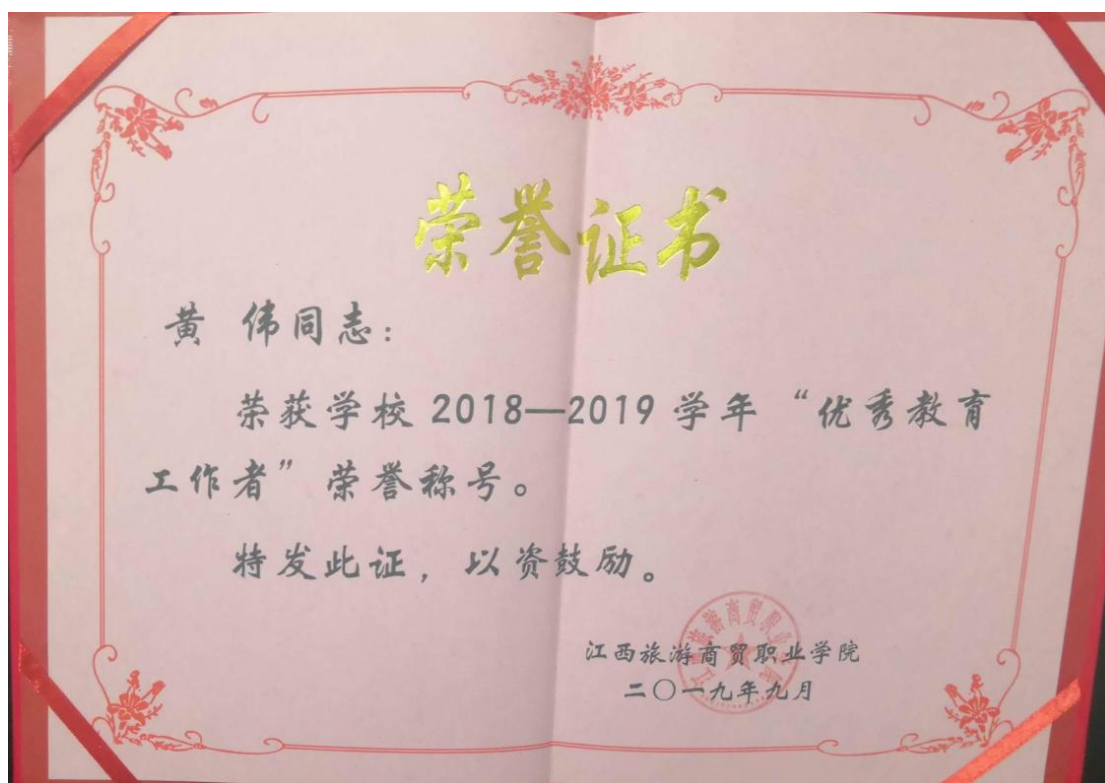 荣誉证书
黄 伟同志：
荣获学校 2018—2019 学年“优秀教育
工作者”荣誉称号。
特发此证，以资鼓励。
江西旅游商贸职业学院
二〇一九年九月